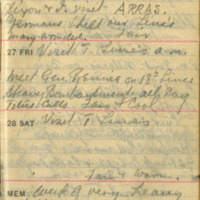 & Dr visit ARRAS.
Germans shell our lines
many wounded. Fair
27 FRI Visit T. Lines a.m.
meet Gen on 13th Lines
Heavy Bombardment all Day
Fair & Cool
28 SAT Visit T. Lines
Fair & Warm.
MEM Week of very heavy